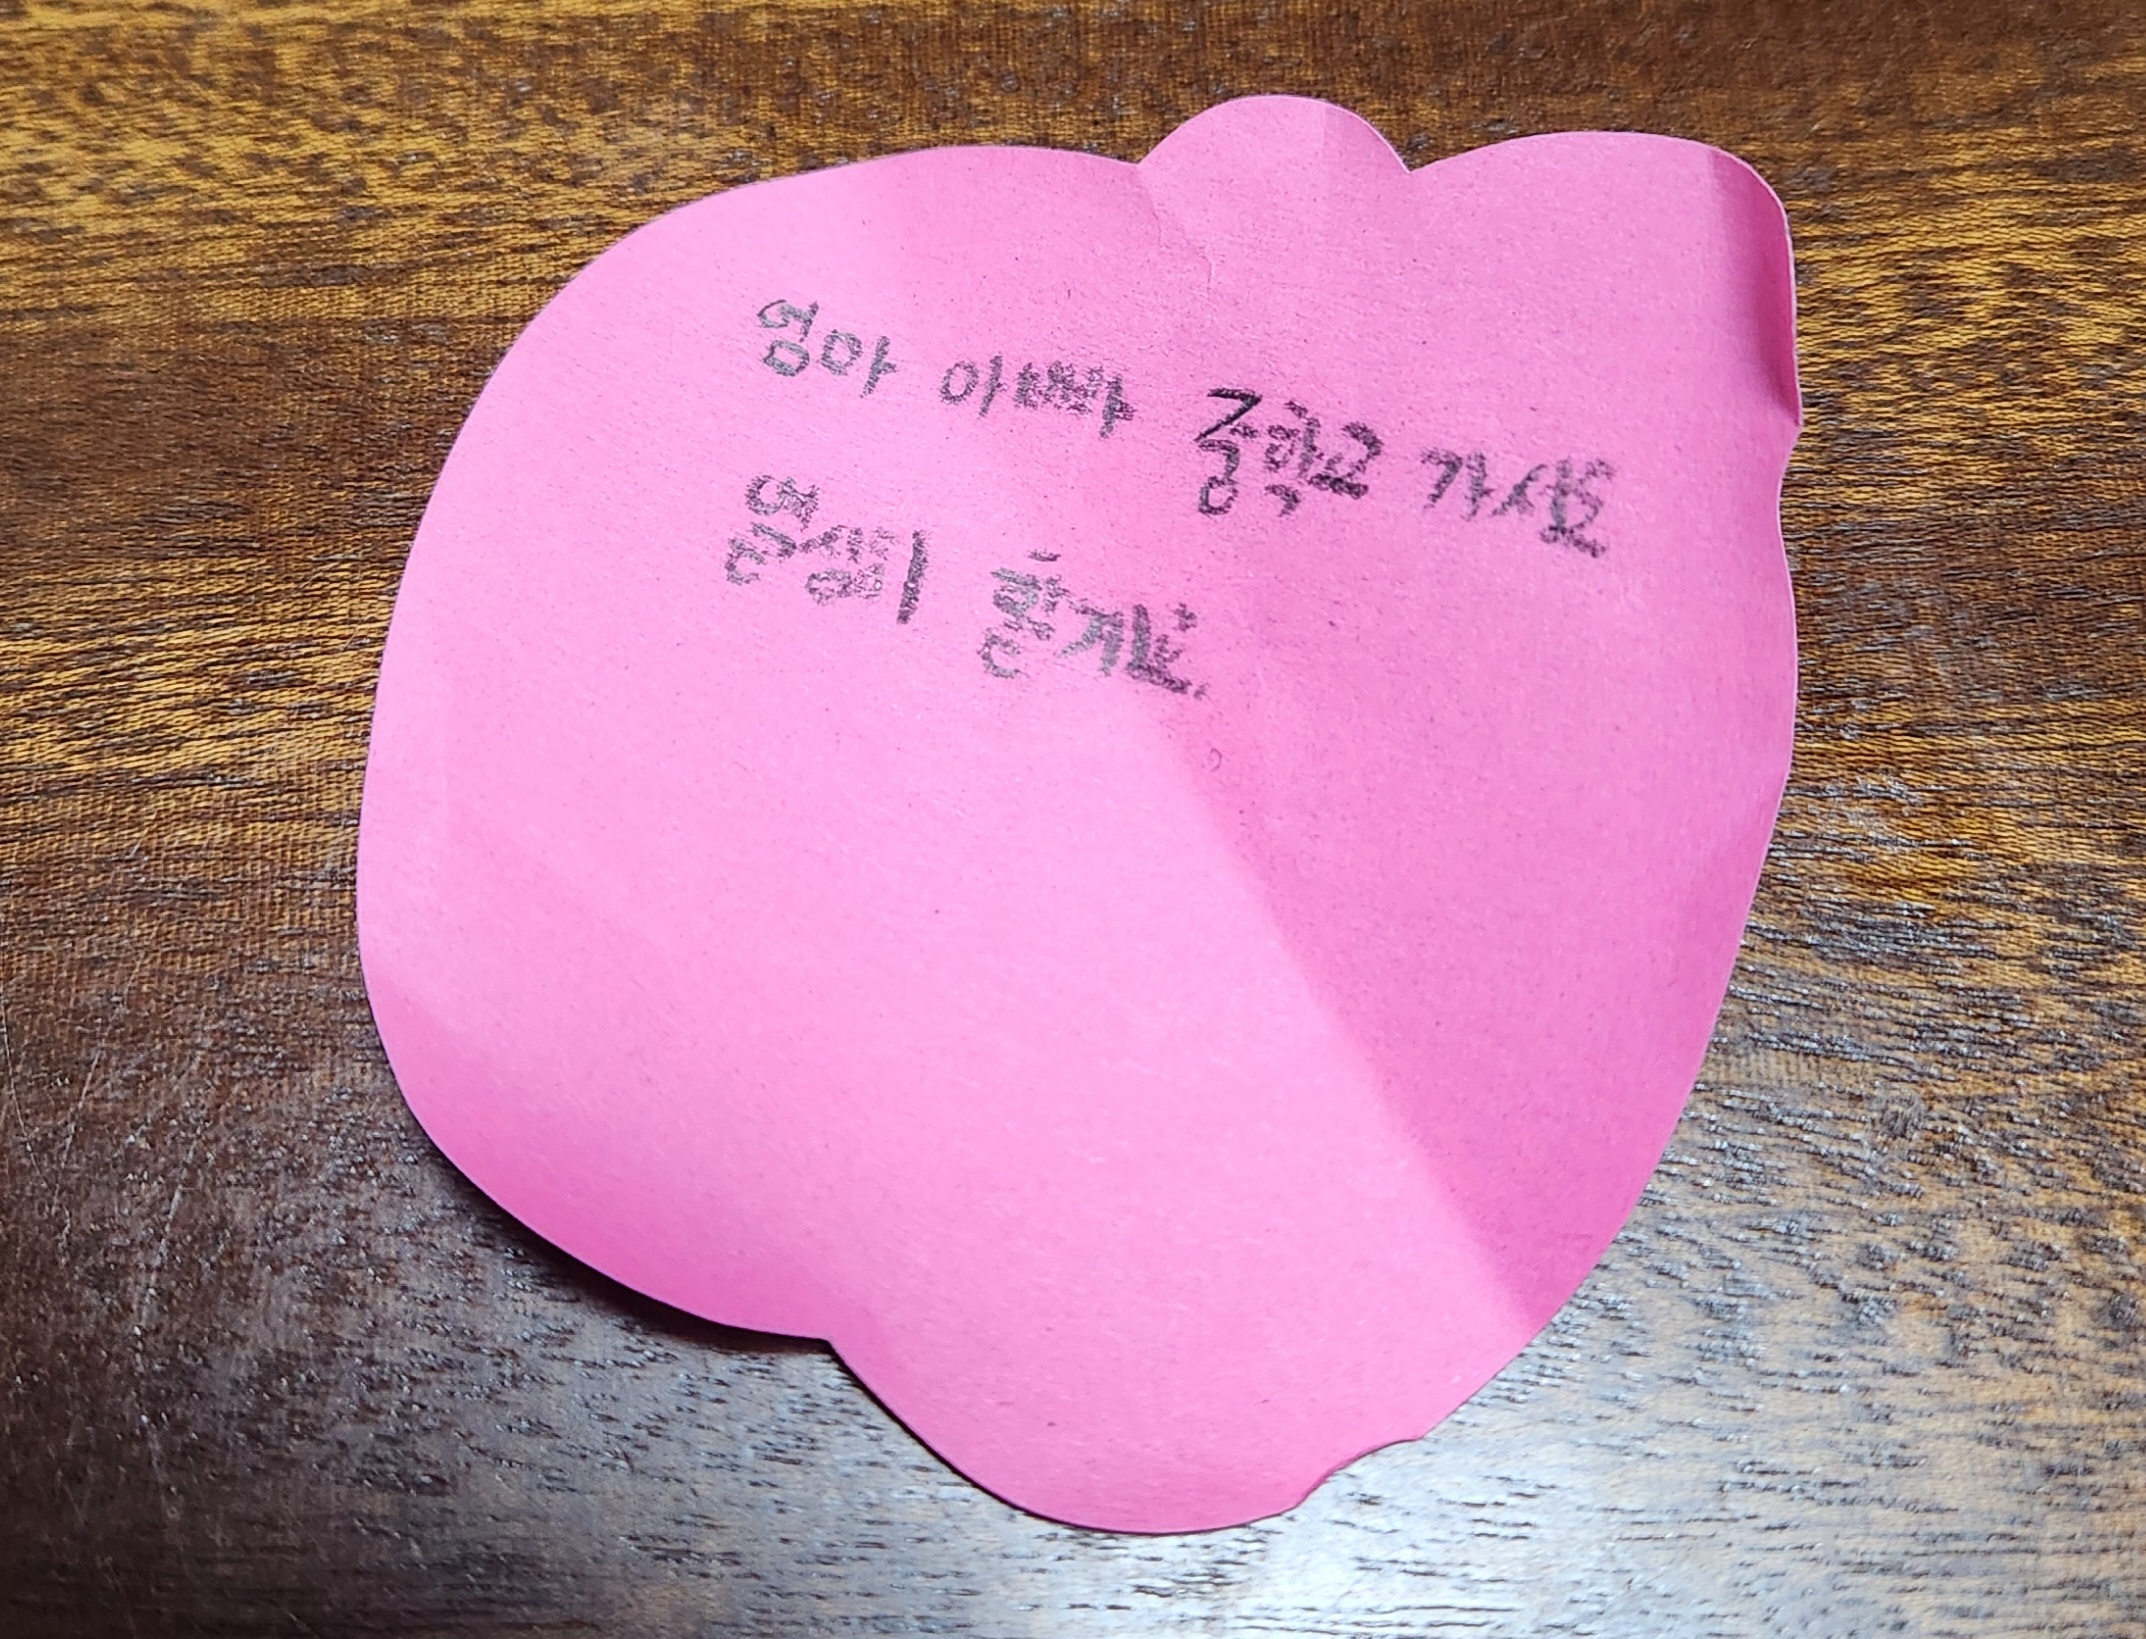 엄마 아빠 중학교 가서도
열심히 할게요.